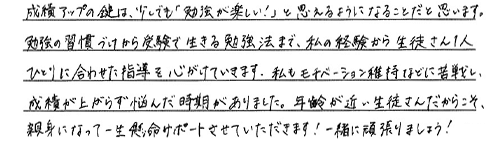 成績アップの鍵は、少しでも「勉強が楽しい！」と思えるようになることだと思います。
勉強の習慣づけから受験で生きる勉強法まで、私の経験から生徒さん1人
ひとりに合わせた指導を心がけていきます。私もモチベーション維持などに苦戦し、
成績が上がらず悩んだ時期がありました。年齢が近い生徒さんだからこそ、
親身になって一生懸命サポートさせていただきます！一緒に頑張りましょう！